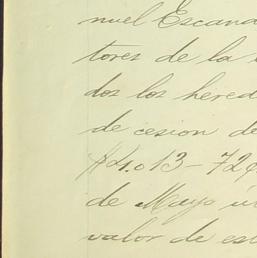 nuel Escand
tores de la
dos los hered
de cesion de
de Mayo ú
valor de es